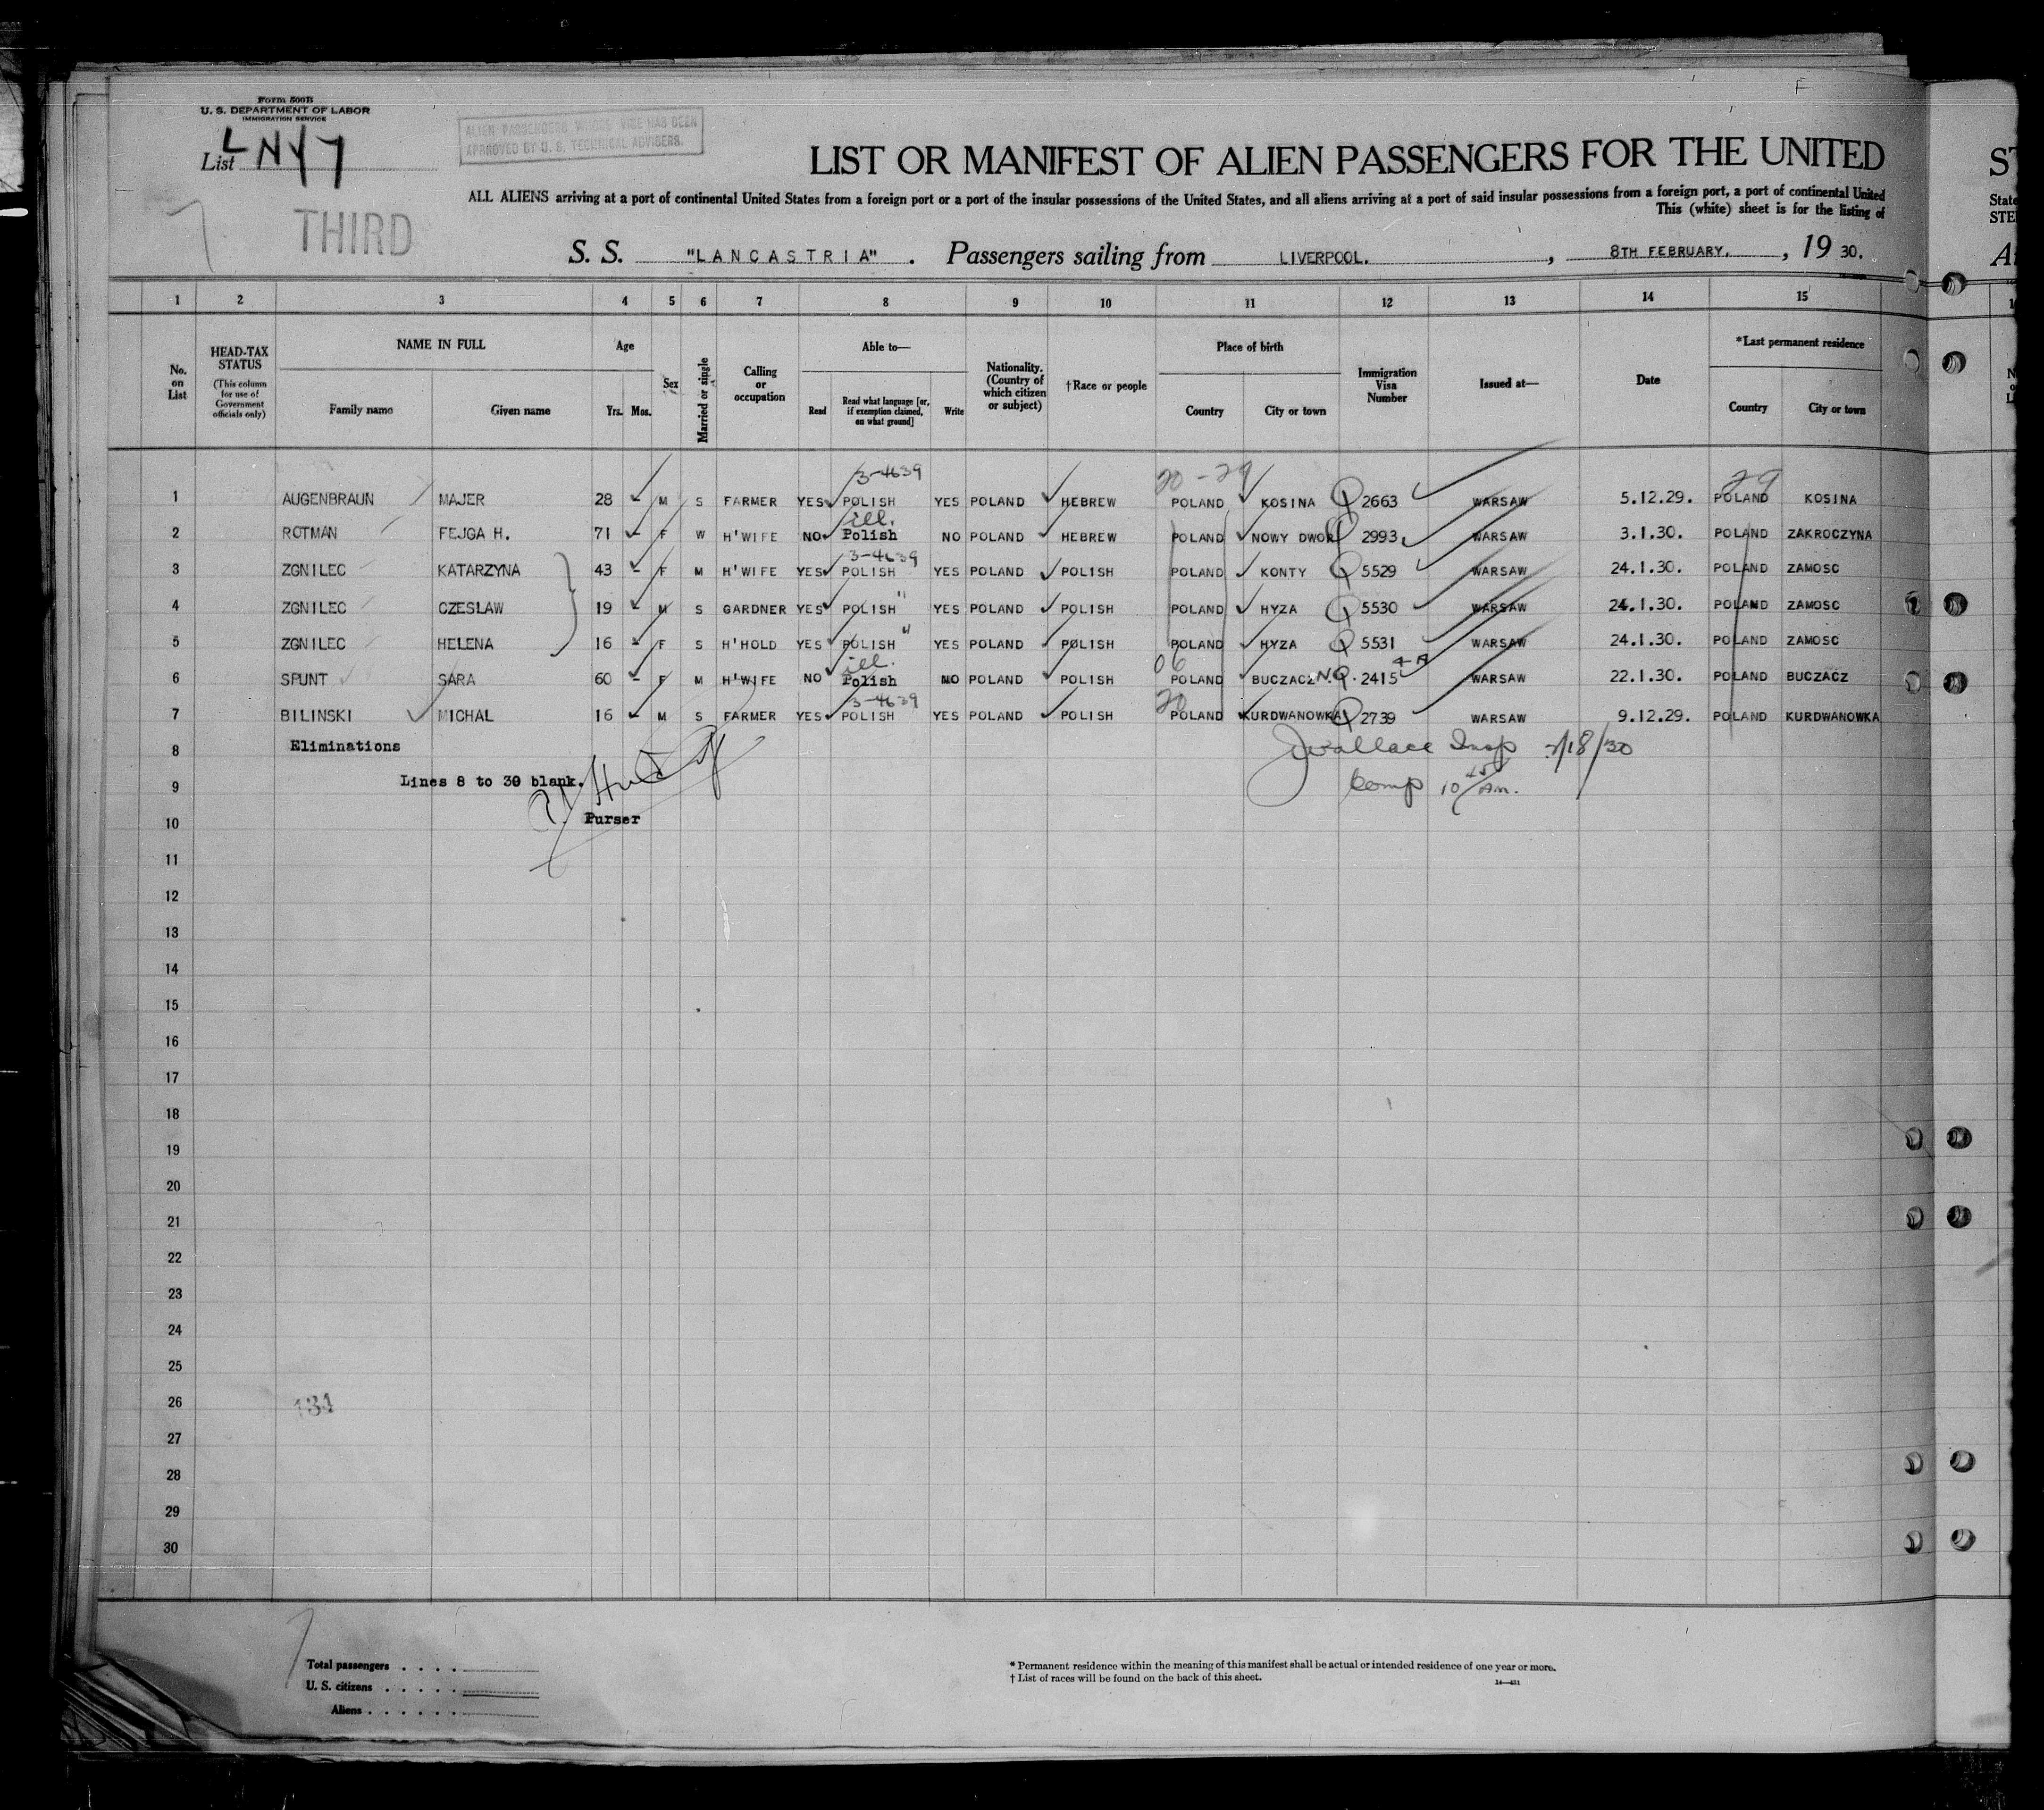 Form 500B
U. S. DEPARTMENT OF LABOR
IMMIGRATION SERVICE
List L NY 7
ALIEN PASSENGERS WHOSE VISE HAS BEEN
APPROVED BY U. S. TECHNICAL ADVISERS.
LIST OR MANIFEST OF ALIEN PASSENGERS FOR THE UNITED
ST
ALL ALIENS arriving at a port of continental United States from a foreign port or a port of the insular possessions of the United States, and all aliens arriving at a port of said insular possessions from a foreign port, a port of continental United
State
This (white) sheet is for the listing of
STE
7
THIRD
S. S. "LANCASTRIA". Passengers sailing from LIVERPOOL. , 8TH FEBRUARY. , 19 30.
1 2 3 4 5 6 7 8 9 10 11 12 13 14 15
No. on List
HEAD-TAX STATUS
(This column for use of Government officials only)
NAME IN FULL
Family name Given name
Age
Yrs. Mos.
Sex
Married or single
Calling or occupation
Able to—
Read
Read what language [or, if exemption claimed, on what ground]
Write
Nationality. (Country of which citizen or subject)
†Race or people
Place of birth
Country City or town
Immigration Visa Number
Issued at—
Date
*Last permanent residence
Country City or town
3-4639 20-29 29
1 AUGENBRAUN MAJER 28 - M S FARMER YES POLISH YES POLAND HEBREW POLAND KOSINA Q 2663 WARSAW 5.12.29. POLAND KOSINA
ill.
2 ROTMAN FEJGA H. 71 - F W H'WIFE NO Polish NO POLAND HEBREW POLAND NOWY DWOR Q 2993 WARSAW 3.1.30. POLAND ZAKROCZYNA
3-4639
3 ZGNILEC KATARZYNA 43 - F M H'WIFE YES POLISH YES POLAND POLISH POLAND KONTY Q 5529 WARSAW 24.1.30. POLAND ZAMOSC
4 ZGNILEC CZESLAW 19 - M S GARDNER YES POLISH " YES POLAND POLISH POLAND HYZA Q 5530 WARSAW 24.1.30. POLAND ZAMOSC
5 ZGNILEC HELENA 16 - F S H'HOLD YES POLISH " YES POLAND POLISH POLAND HYZA Q 5531 WARSAW 24.1.30. POLAND ZAMOSC
ill. 06 4 A
6 SPUNT SARA 60 - F M H'WIFE NO Polish NO POLAND POLISH POLAND BUCZACZ N.Q. 2415 WARSAW 22.1.30. POLAND BUCZACZ
3-4639 20
7 BILINSKI MICHAL 16 - M S FARMER YES POLISH YES POLAND POLISH POLAND KURDWANOWKA Q 2739 WARSAW 9.12.29. POLAND KURDWANOWKA
8 Eliminations
J Wallace Insp 2/18/30
9 Lines 8 to 30 blank.
Comp 10 45/AM.
10 Purser
11
12
13
14
15
16
17
18
19
20
21
22
23
24
25
26 134
27
28
29
30
7
Total passengers . . . .
U. S. citizens . . . . .
Aliens . . . . . .
* Permanent residence within the meaning of this manifest shall be actual or intended residence of one year or more.
† List of races will be found on the back of this sheet.
14—431